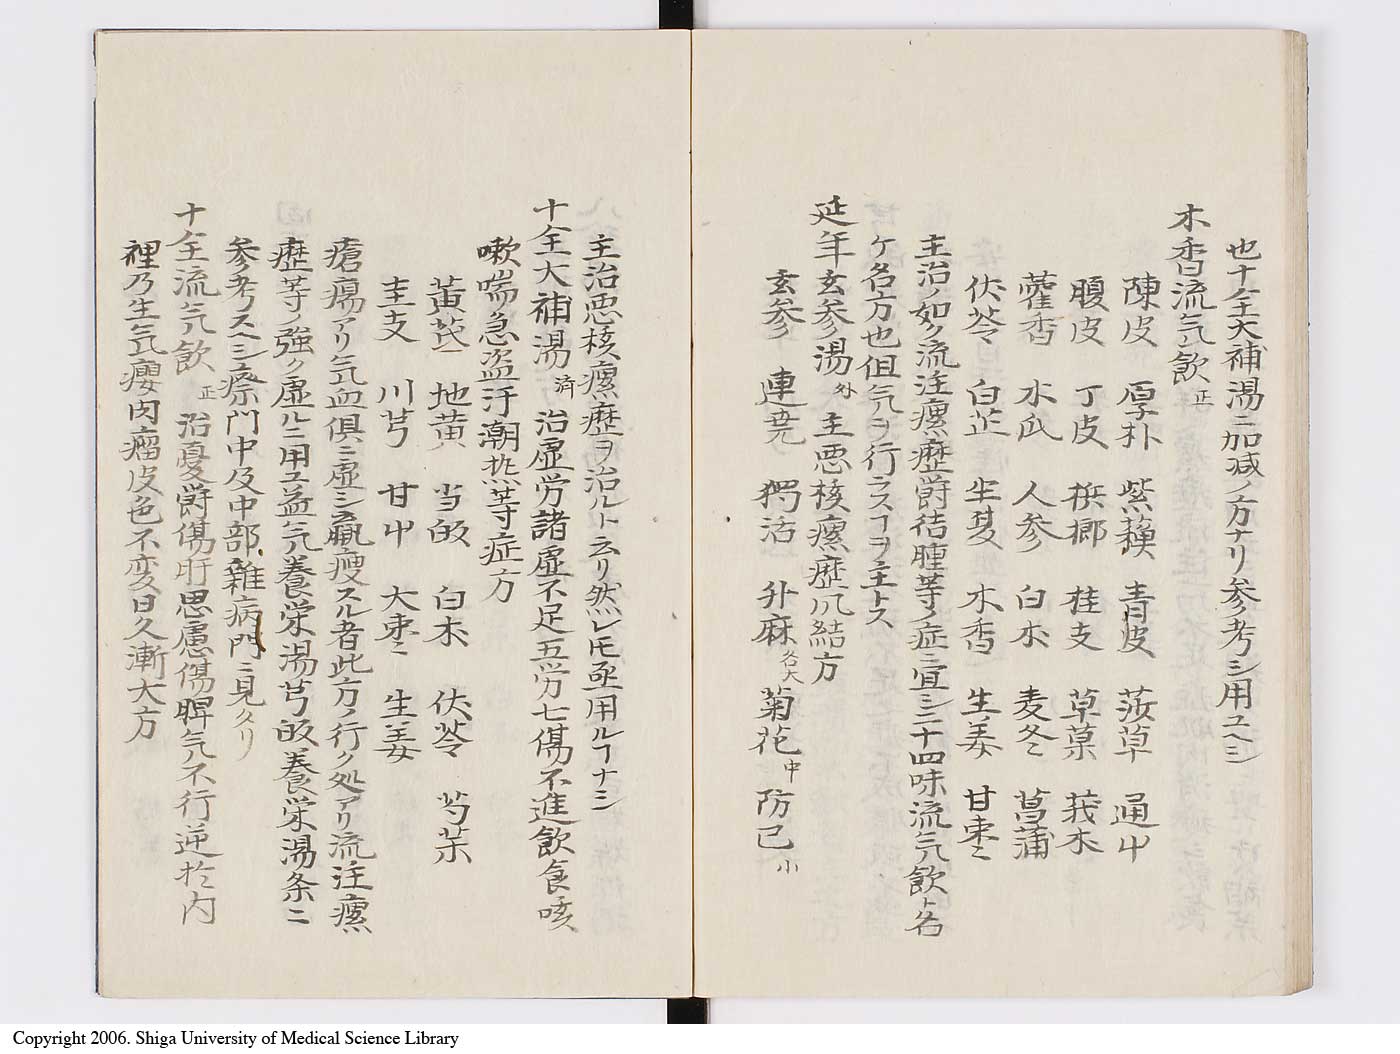 也十全大補湯ニ加減ノ方ナリ参考シ用ユヘシ
木香流気飲 正
陳皮 厚朴 紫蘓 青皮 莎草 通屮
腹皮 丁皮 梹榔 桂支 草菓 莪朮
藿香 木瓜 人参 白朮 麦冬 菖蒲
伏苓 白芷 半夏 木香 生姜 甘棗
主治ノ如ク流注瘰癧欝結腫等ノ症ニ宜シ二十四味流気飲ト名
ケ名方也但気ヲ行ラスヿヲ主トス
延年玄参湯 外 主悪核瘰癧風結方
玄参 連堯 獨活 升麻 各大 菊花 中 防已 小
主治悪核瘰癧ヲ治ルト云リ然レ𪜈亟用ルヿナシ
十全大補湯 済 治虚労諸虚不足五労七傷不進飲食咳
嗽喘急盗汗潮热等症方
黄芪 地黄 当皈 白朮 伏苓 芍薬
圭支 川芎 甘屮 大棗 生姜
瘡瘍アリ気血俱ニ虚シ羸痩スル者此方ノ行ク処アリ流注瘰
癧等ノ強ク虚ルニ用ユ益気養栄湯芎皈養栄湯条ニ
参考スヘシ瘵門中及中部雜病門ニ見タリ
十全流気飲 正 治憂欝傷肝思慮傷脾気不行逆於内
裡乃生気癭肉瘤皮色不変日久漸大方
Copyright 2006. Shiga University of Medical Science Library